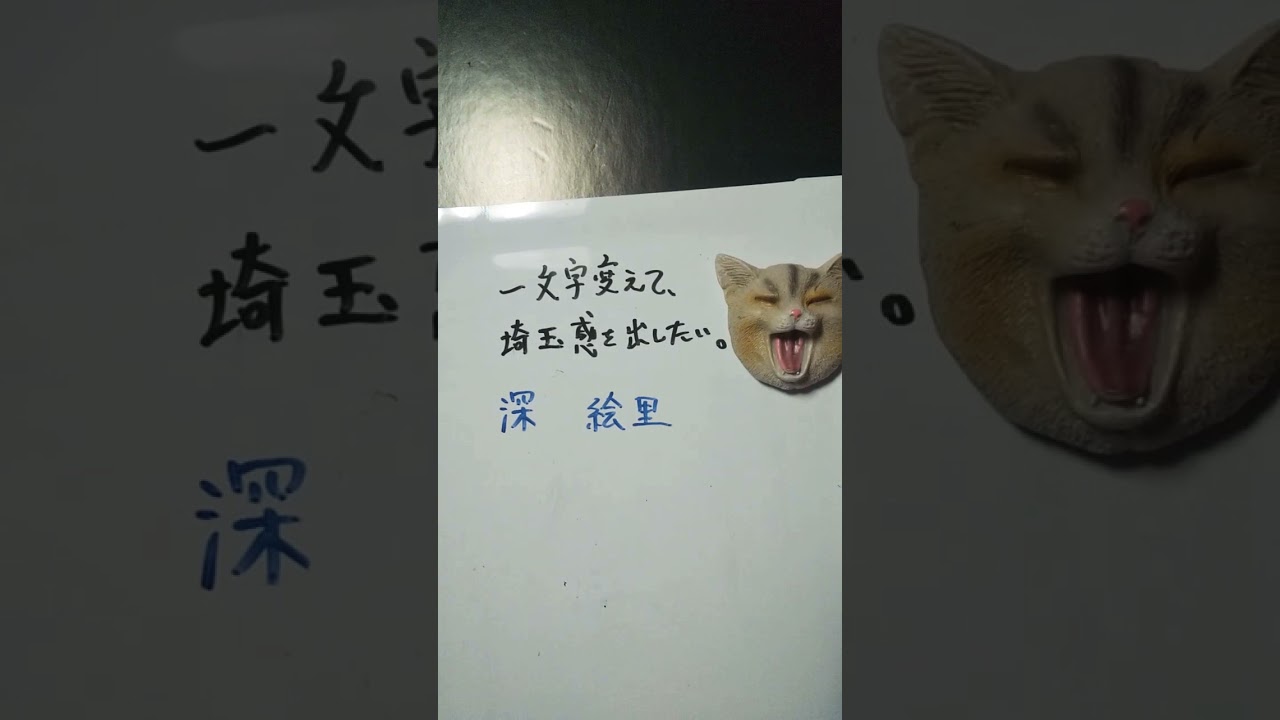 一文字変えて、
埼玉感を出したい。
深 絵里